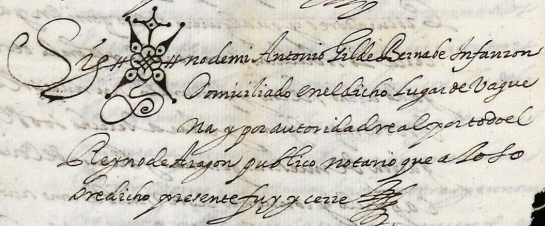 Sig no de mi Antonio Gil de Bernabe Infanzon
Domiciliado en el dicho Lugar de Vague
na y por autoridad real por todo el
Reyno de Aragon publico notario que a lo so
bredicho presente fuy y cerre